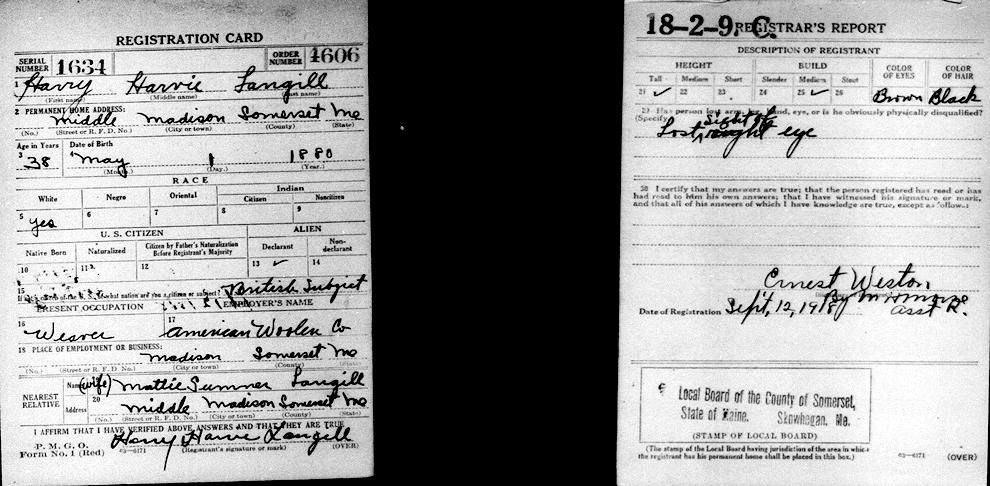 REGISTRATION CARD
SERIAL NUMBER 1634 ORDER NUMBER 4606
1 Harry Harvie Langill
(First name) (Middle name) (Last name)
2 PERMANENT HOME ADDRESS:
Middle Madison Somerset Me
(No.) (Street or R. F. D. No.) (City or town) (County) (State)
Age in Years Date of Birth
3 38 4 May 1 1880
(Month.) (Day.) (Year.)
RACE
White Negro Oriental Indian
Citizen Noncitizen
5 Yes 6 7 8 9
U. S. CITIZEN ALIEN
Native Born Naturalized Citizen by Father's Naturalization Before Registrant's Majority Declarant Non-declarant
10 11 12 13 ✓ 14
15 If not a citizen of the U. S., of what nation are you a citizen or subject? British Subject
PRESENT OCCUPATION EMPLOYER'S NAME
16 Weaver 17 American Woolen Co
18 PLACE OF EMPLOYMENT OR BUSINESS:
Madison Somerset Me
(No.) (Street or R. F. D. No.) (City or town) (County) (State)
NEAREST RELATIVE Name (wife) Mattie Sumner Langill
Address 20 Middle Madison Somerset Me
(No.) (Street or R. F. D. No.) (City or town) (County) (State)
I AFFIRM THAT I HAVE VERIFIED ABOVE ANSWERS AND THAT THEY ARE TRUE
P. M. G. O. Harry Harvie Langill
Form No. 1 (Red) 03—6171 (Registrant's signature or mark) (OVER)
18-2-9. C. REGISTRAR'S REPORT
DESCRIPTION OF REGISTRANT
HEIGHT BUILD COLOR OF EYES COLOR OF HAIR
Tall Medium Short Slender Medium Stout
21 ✓ 22 23 24 25 ✓ 26 Brown Black
29 Has person lost arm, leg, hand, eye, or is he obviously physically disqualified?
(Specify.) Sight of
Lost right eye
30 I certify that my answers are true; that the person registered has read or has
had read to him his own answers; that I have witnessed his signature or mark,
and that all of his answers of which I have knowledge are true, except as follows:
Ernest Weston
Date of Registration Sept, 12, 1918 asst R.
Local Board of the County of Somerset,
State of Maine. Skowhegan, Me.
(STAMP OF LOCAL BOARD)
(The stamp of the Local Board having jurisdiction of the area in which
the registrant has his permanent home shall be placed in this box.) 03—6171 (OVER)